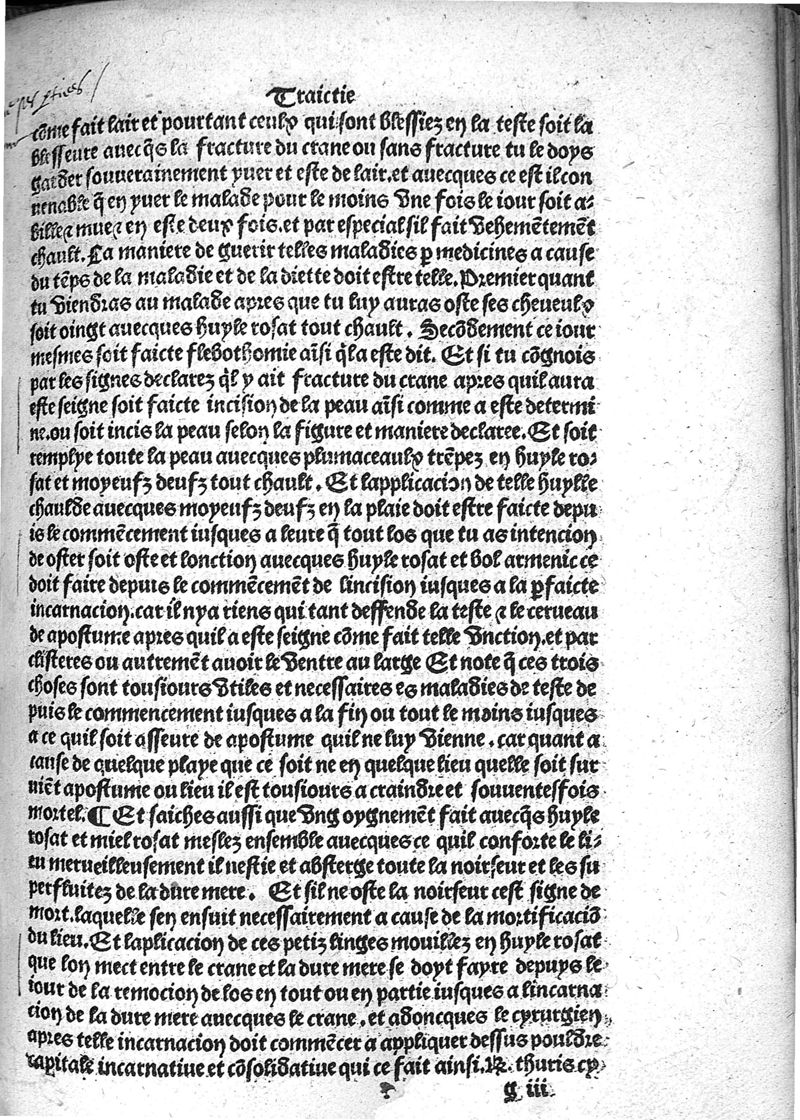 Traictie
cõme fait lair et pourtant ceulx qui sont blessiez en la teste soit la
blesseure avecq̃s la fracture du crane ou sans fracture tu le doys
garder souverainement yver et este de lair.et avecques ce est il con
venable q̃ en yver le malade pour le moins une fois le iour soit a-
bille ⁊ mue ⁊ en este deux fois.et par especial sil fait vehemẽtemẽt
chault. La maniere de guerir telles maladies p̱ medicines a cause
du tẽps de la maladie et de la diette doit estre telle. Premier quant
tu viendras au malade apres que tu luy auras oste ses cheveulx
soit oingt avecques huyle rosat tout chault. Secõdement ce iour
mesmes soit faicte flebothomie aĩsi q̃ la este dit. Et si tu cõgnois
par les signes declarez q̃l y ait fracture du crane apres quil aura
este seigne soit faicte incision de la peau aĩsi comme a este determi
ne.ou soit incis la peau selon la figure et maniere declaree. Et soit
remplye toute la peau avecques plumaceaulx trẽpez en huyle ro-
sat et moyeufz deufz tout chault. Et lapplicacion de telle huylle
chaulde avecques moyeufz deufz en la plaie doit estre faicte depu
is le commẽcement iusques a leure q̃ tout los que tu as intencion
de oster soit oste et lonction avecques huyle rosat et bol armenic ce
doit faire depuis le commẽcemẽt de lincision iusques a la p̱faicte
incarnacion.car il nya riens qui tant deffende la teste ⁊ le cerveau
de apostume apres quil a este seigne cõme fait telle unction.et par
clisteres ou autremẽt avoir le ventre au large Et note q̃ ces trois
choses sont tousiours utiles et necessaires es maladies de teste de
puis le commencement iusques a la fin ou tout le moins iusques
a ce quil soit asseure de apostume quil ne luy vienne.car quant a
cause de quelque playe que ce soit ne en quelque lieu quelle soit sur
viẽt apostume ou lieu il est tousiours a craindre et souventesfois
mortel. ¶ Et saiches aussi que ung oygnemẽt fait avecq̃s huyle
rosat et miel rosat meslez ensemble avecques ce quil conforte le li-
eu merveilleusement il nestie et absterge toute la noirseur et les su
perfluitez de la dure mere. Et sil ne oste la noirseur cest signe de
mort.laquelle sen ensuit necessairement a cause de la mortificaciõ
du lieu. Et laplicacion de ces petiz linges mouillez en huyle rosat
que lon mect entre le crane et la dure mere se doyt fayre depuys le
iour de la remocion de los en tout ou en partie iusques a lincarna-
cion de la dure mere avecques le crane.et adoncques le cyrurgien
apres telle incarnacion doit commẽcer a appliquer dessus pouldre
capitale incarnative et cõsolidative qui ce fait ainsi. ℞. thuris cy-
g iii